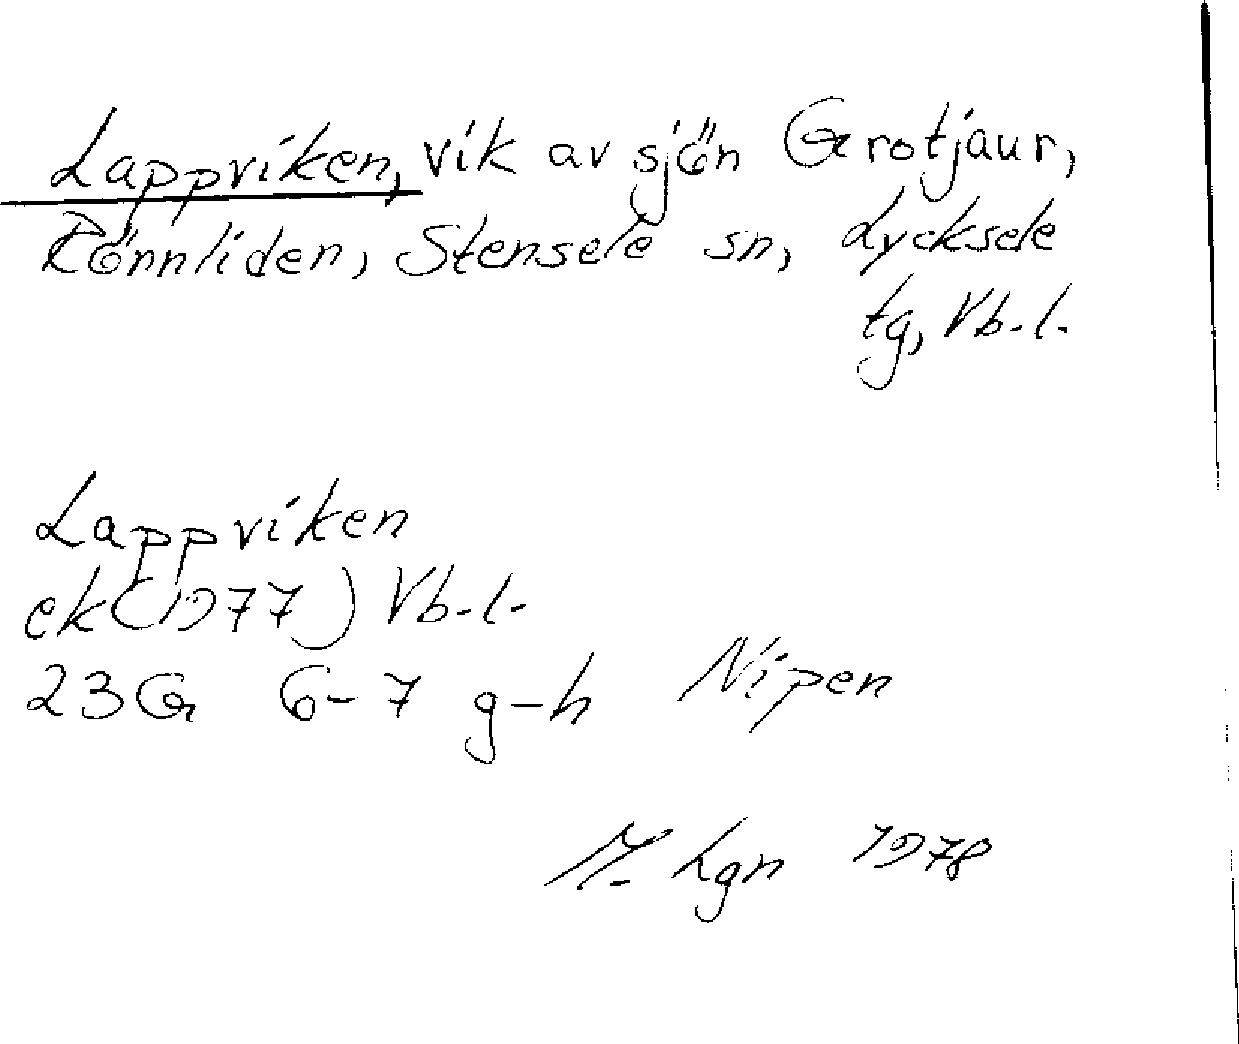 Lappviken, vik av sjön Grotjaur,
Rönnliden, Stensele sn, Lycksele
tg, Vb-l.
Lappviken
ek (1977) Vb-l.
23G 6-7 g-h Nipen
M. Lgn 1978